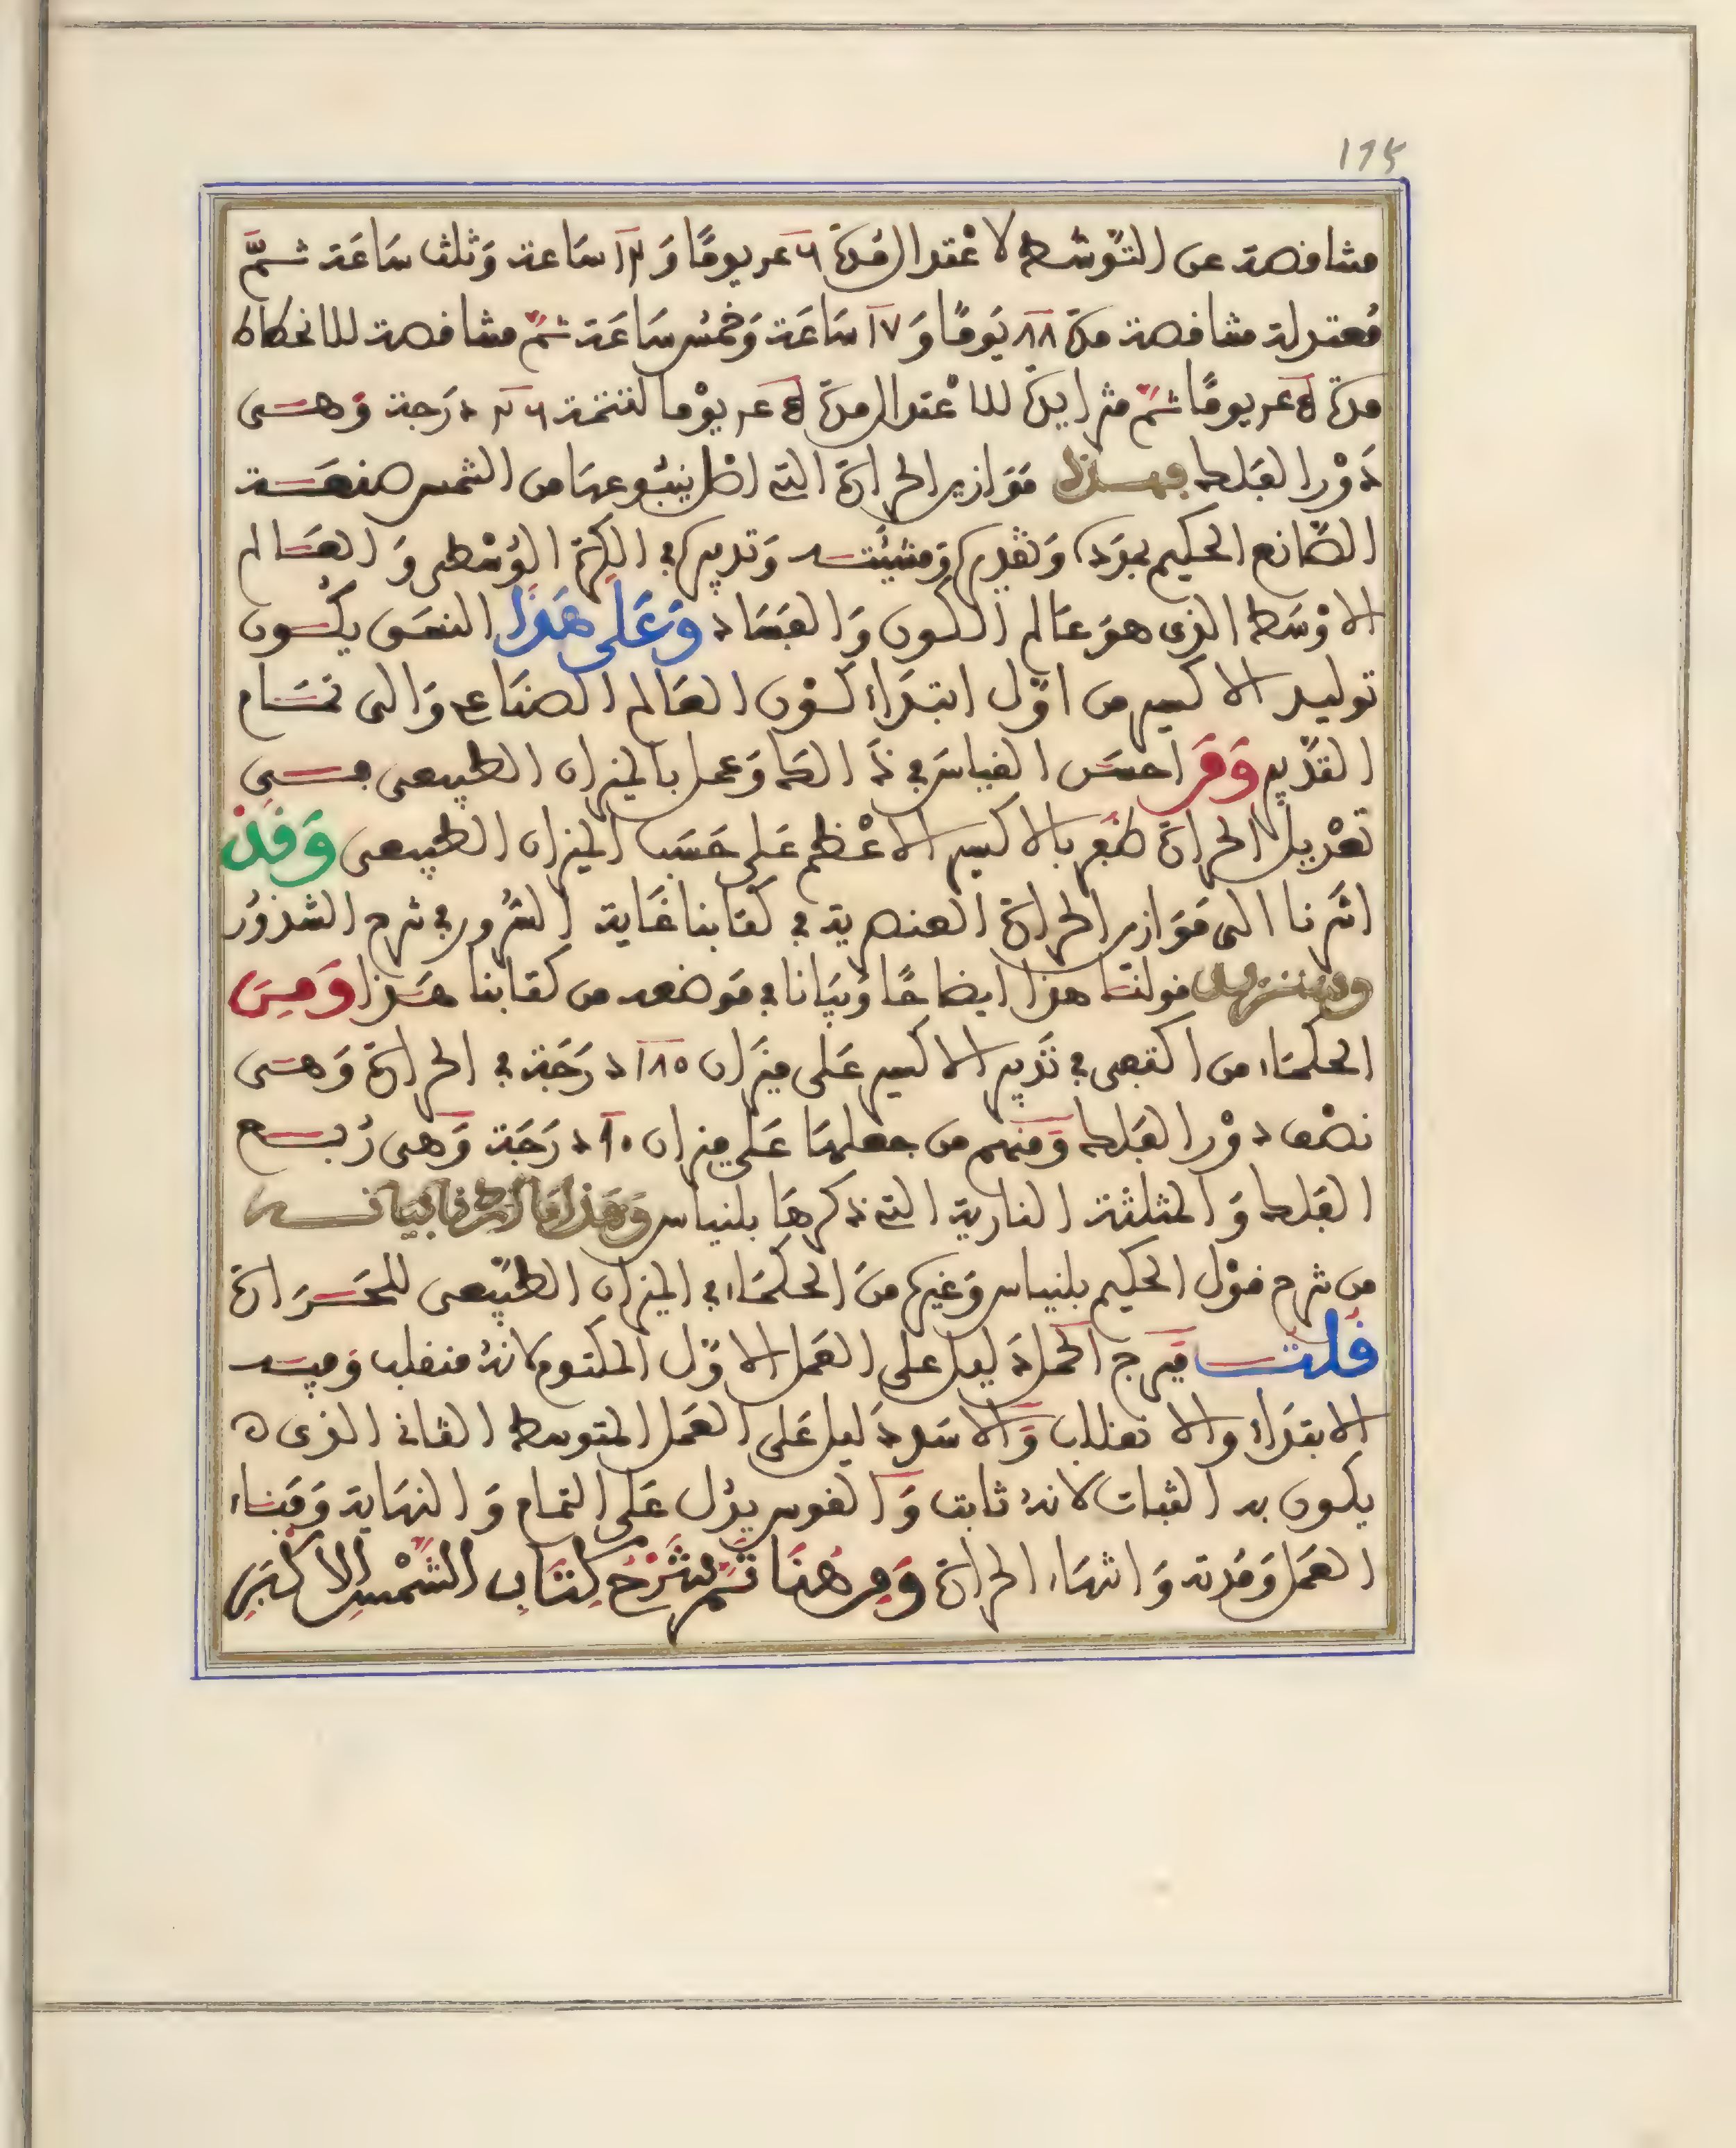 ١٦٥
متناقصة عن التوسط لاعتدال مدة يوما و ١٣ ساعة وثلث ساعة ثمّ
معتدلة متناقصة مدة ٨٨ يَومًا وَ ١٧ سَاعَة وَخمْس سَاعَة ثمّ متناقصة للانحطاط
مدة يومًا ثمّ متزايدة للاعْتدال مدة يوْما لتتمّة درَجة وَهـى
دَوْر الفلك فهـذه مَوَازين الحرارة التى اصْل ينبُوعهَا من الشمس صنعَـة
الصّانع الحكيم بجوده وَتقديره وَمشيئته وَتدبيره في الكرة الوُسْطى وَالعَـالم
الاوْسَط الذى هوَ عَالم الكـون وَالفسَاد وَعَلَى هَذا النسَق يكُـون
توليد الاكسير من اوّل ابتدَاء كـوْن العَالم الصنَاعى وَالى تمـَام
التدْبير وَمَن احسَن القيَاسَ في وَعمل بالميزان الطبيعى فـى
تعْديل الحرارة ظفر بالاكسير الاعْظم عَلى حَسَب الميزان الطبيعى وَقَدْ
اشرنا الى مَوَازين الحرارة العنصرية في كتابنا غَاية السُرور في شرح الشذوُر
وسنزيد قولنَـا هذا ايضاحًا وَبيَانا في مَوضعه من كتابنا هَـذا وَمِنَ
الحكمَاء من اكتفى في تدْبير الاكسير عَلى ميزَان ١٨٠ درَجَة في الحرارة وَهـى
نصْف دوْر الفلك وَمنهم من جعلهَا عَلى ميزان ٩٠ درَجَة وَهى رُبـع
الفلك وَالمثلثة النارية التى ذكرهَا بلنياس وَهَذا مَا اردْنا بيَانـه
من شرح قوْل الحكيم بلنياس وَغيره منَ الحكمَاء في الميزان الطبيعى للحَـرَارة
قلت فبرج الحمل دَليل على العَمل الاوّل المكتوم لانهُ منقلب وَفيـه
الابتدَاء والانقلاب وَالاسَد دَليل عَلى العَمل المتوسط الثانى الذى
يكون به الثبات لانهُ ثابت وَالقوس يدُل عَلى التمام وَالنهَاية وَفنَاء
العَمل وَمُدته وَانتهَاء الحرارة وَمِن هُنَا تَمَّ شَرْحُ كِتَابِ الشَمْسِ الاكْبَرِ